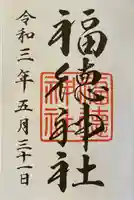 福徳神社
令和三年五月三十一日